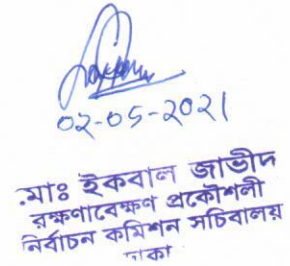 02-05-2021
মোঃ ইকবাল জাভীদ
রক্ষণাবেক্ষণ প্রকৌশলী
নির্বাচন কমিশন সচিবালয়
ঢাকা